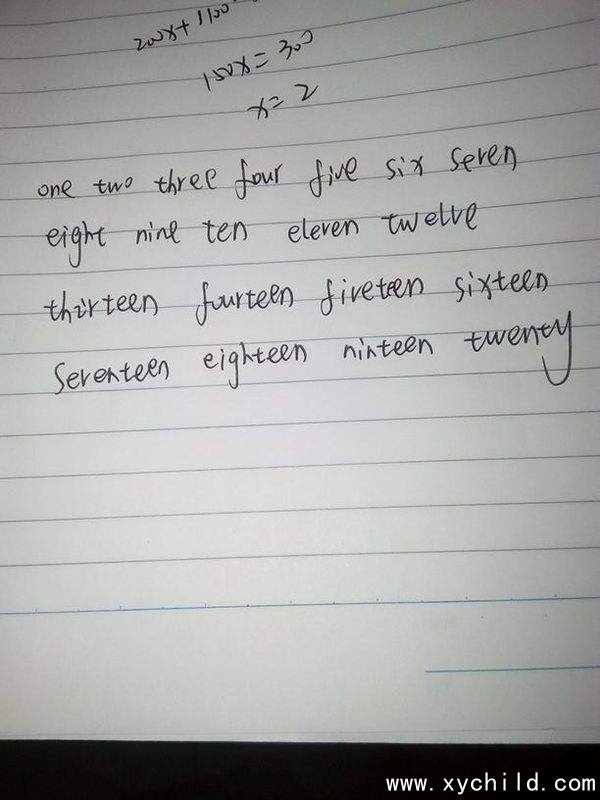 200x+1100
150x=300
x=2
one two three four five six seven
eight nine ten eleven twelve
thirteen fourteen fiveteen sixteen
seventeen eighteen ninteen twenty
www.xychild.com